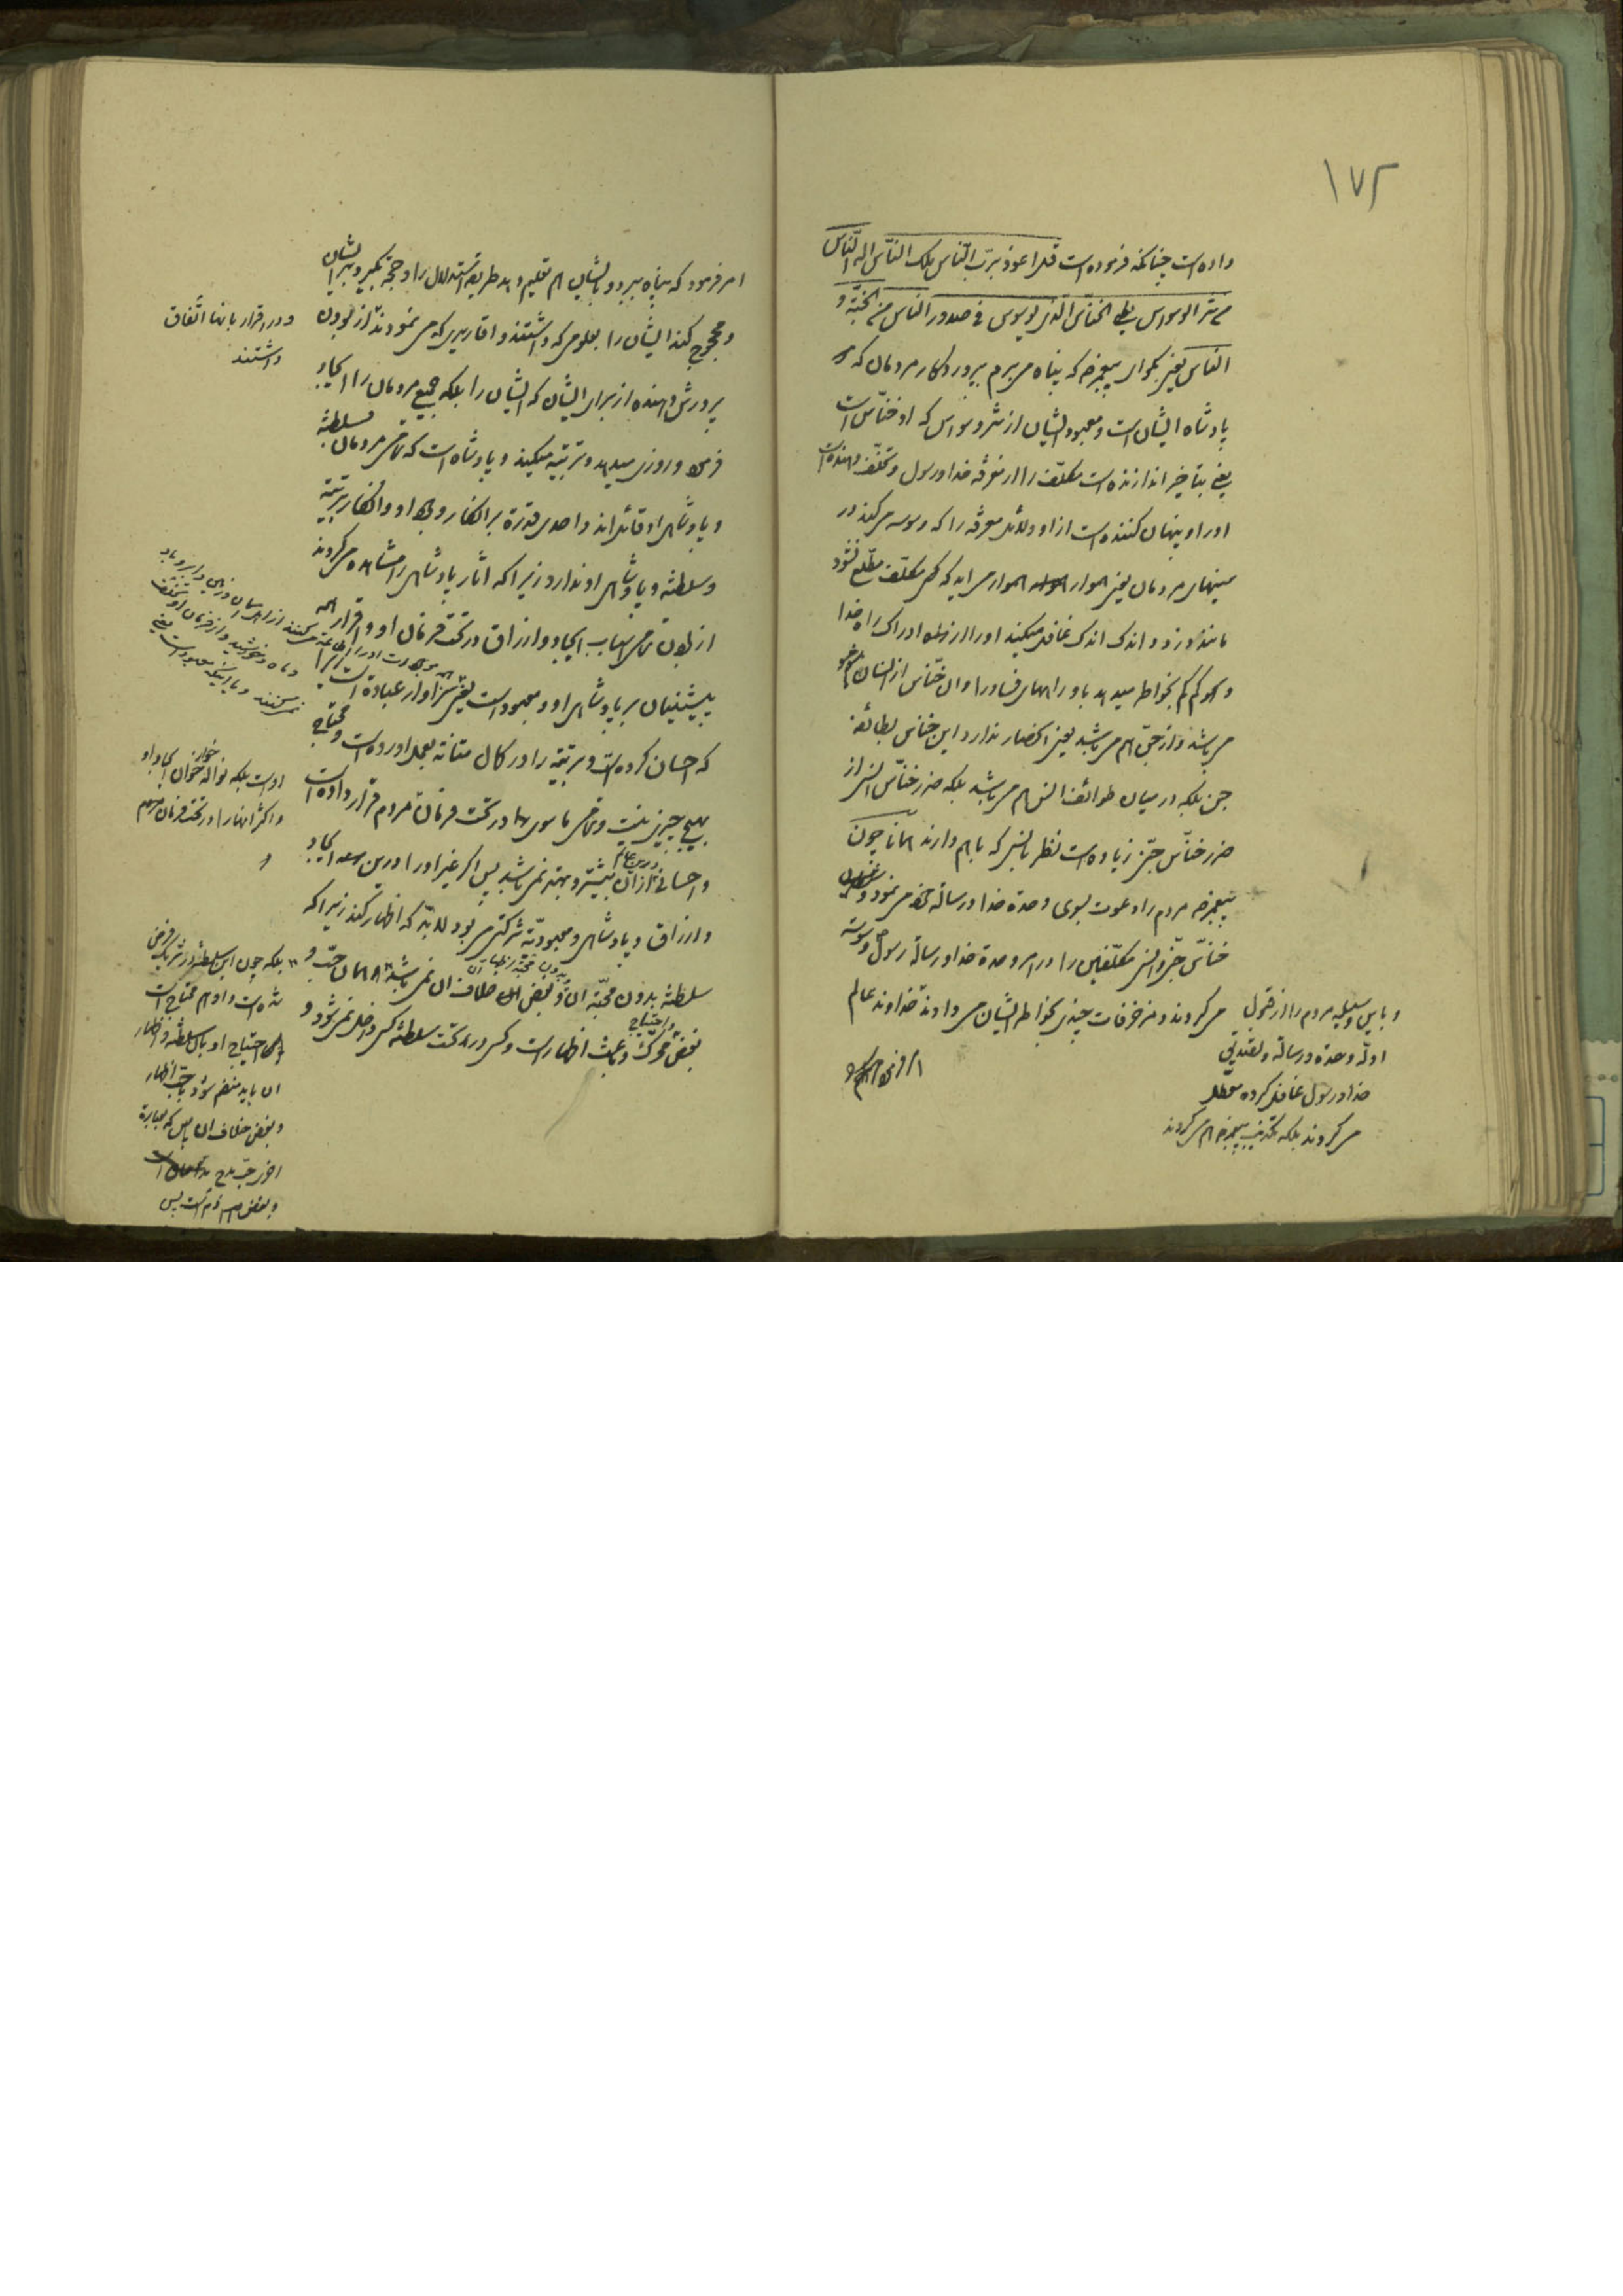 ۱۷۲
داده است چنانکه فرموده است قل اعوذ برب النّاس ملک النّاس اله النّاس
من شر الوسواس الخنّاس الّذی یوسوس فی صدور الناس من الجنّة و
النّاس یعنی بکو ای پیغمبر که پناه میبرم بپروردکار مردمان که
پادشاه ایشان است و معبود ایشان از شر وسواس که او خنّاس است
یعنی بتاخیر اندازنده است مکلّف را از معرفة خدا و رسول و
او را و پنهان کننده است از او دلائل معرفة را که وسوسه میکند در
سینهای مردمان یعنی هموار هموار می اید که مکلّف مطّلع نشود
مانند دزد و اندک اندک غافل میکند او را از ادراک راه خدا
و کم کم بخواطر میدهد باو راههای فساد را و ان خنّاس از انسان هم
می باشد و از جنّ هم می باشد یعنی انحصار ندارد این خنّاس بطائفه
جن بلکه در میان طوائف انس هم می باشد بلکه ضرر خنّاس انس از
ضرر خنّاس جنّ زیاده است نظر بانسی که با هم دارند همانا چون
پیغمبر مردم را دعوت بسوی وحدة خدا و رسالة خود می نمود
خنّاس جنّ و انس مکلّفین را در امر وحدة خدا و رسالة رسول وسوسه
می کردند و مزخرفات چندی بخواطر ایشان می دادند خداوند عالم
و باین وسیله مردم را از قبول
ادلّه وحدة و رسالة و تصدیق
خدا و رسول غافل کرده معطّل
می کردند بلکه تکذیب پیغمبر هم می کردند
امر فرمود که پناه ببرد و بایشان هم تعلیم دهد طریقه استدلال را و حجّة بکیرد بر ایشان
و محجوج کند ایشان را بعلومی که داشتند و اقاریری که می نمودند از بودن
و در اقرار بانها اتّفاق
داشتند
پرورش دهنده از برای ایشان که ایشان را بلکه جمیع مردمان را ایجاد
فرموده و روزی میدهد و تربیة میکند و پادشاه است که تمامی مردمان بسلطنة
و پادشاهی او قائل اند و احدی قدرة بر انکار وجود او و انکار تربیة
و سلطنة و پادشاهی او ندارد زیرا که اثار پادشاهی را مشاهده می کردند
از بودن تمامی اسباب ایجاد و ارزاق در تحت فرمان او و اقرار همه
پیشینیان بر پادشاهی او و معبود است یعنی سزاوار عبادة است
که احسان کرده است و تربیة را در کمال متانة بعمل اورده است و محتاج
بهیچ چیزی نیست و تمامی ما سوی را در تحت فرمان مردم قرار داده است
و احسانی از ان بیشتر و بهتر نمی باشد پس اکر غیر او را در این ایجاد
در این عالم
و ارزاق و پادشاهی و معبودیّة شرکتی می بود لابدّ که اظهار کند زیرا که
سلطنة بدون محبّة ان و بغض خلاف ان نمی باشد همان حبّ و
بغض محرّک و باعث اظهار است و کسی در تحت سلطنة کسی داخل نمی شود و
و احتیاج
و ماه و خورشید و از فرمان او تخلّف
نمی کنند و با اینکه معبود است یعنی
او است بلکه نواله خوار خوان ایجاد او
و اکثر انها را در تحت فرمان مردم
بلکه چون این سلطنة از شریک فرض
شده است و او هم محتاج است
احتیاج او باین سلطنة و اظهار
ان باید منضم شود با حبّ اظهار
و بغض خلاف ان باین که بعبارة
اخری حبّ مدح
و بغض ذم است پس